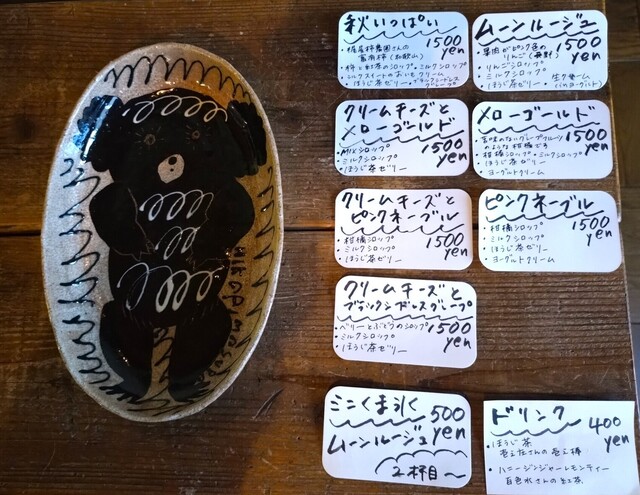 秋いっぱい
1500
yen
・柿と紅茶のシロップ・ミルクシロップ
・ほうじ茶ゼリー・ブラックシードレス
グレープ
ムーンルージュ
1500
yen
・果肉がピンク色の
りんご
・りんごシロップ
・ミルクシロップ
・ほうじ茶ゼリー
生クリーム
クリームチーズと
メローゴールド
1500
yen
・Mixシロップ
・ミルクシロップ
・ほうじ茶ゼリー
メローゴールド
1500
yen
・苦味のないグレープフルーツ
のような柑橘です
・柑橘シロップ・ミルクシロップ
・ほうじ茶ゼリー
・ヨーグルトクリーム
クリームチーズと
ピンクネーブル
1500
yen
・柑橘シロップ
・ミルクシロップ
・ほうじ茶ゼリー
ピンクネーブル
1500
yen
・柑橘シロップ
・ミルクシロップ
・ほうじ茶ゼリー
・ヨーグルトクリーム
クリームチーズと
ブラックシードレスグレープ
1500
yen
・ベリーとぶどうのシロップ
・ミルクシロップ
・ほうじ茶ゼリー
ミニくま氷
ムーンルージュ
500
yen
2杯目〜
ドリンク
400
yen
・ほうじ茶
・ハニージンジャーレモンティー